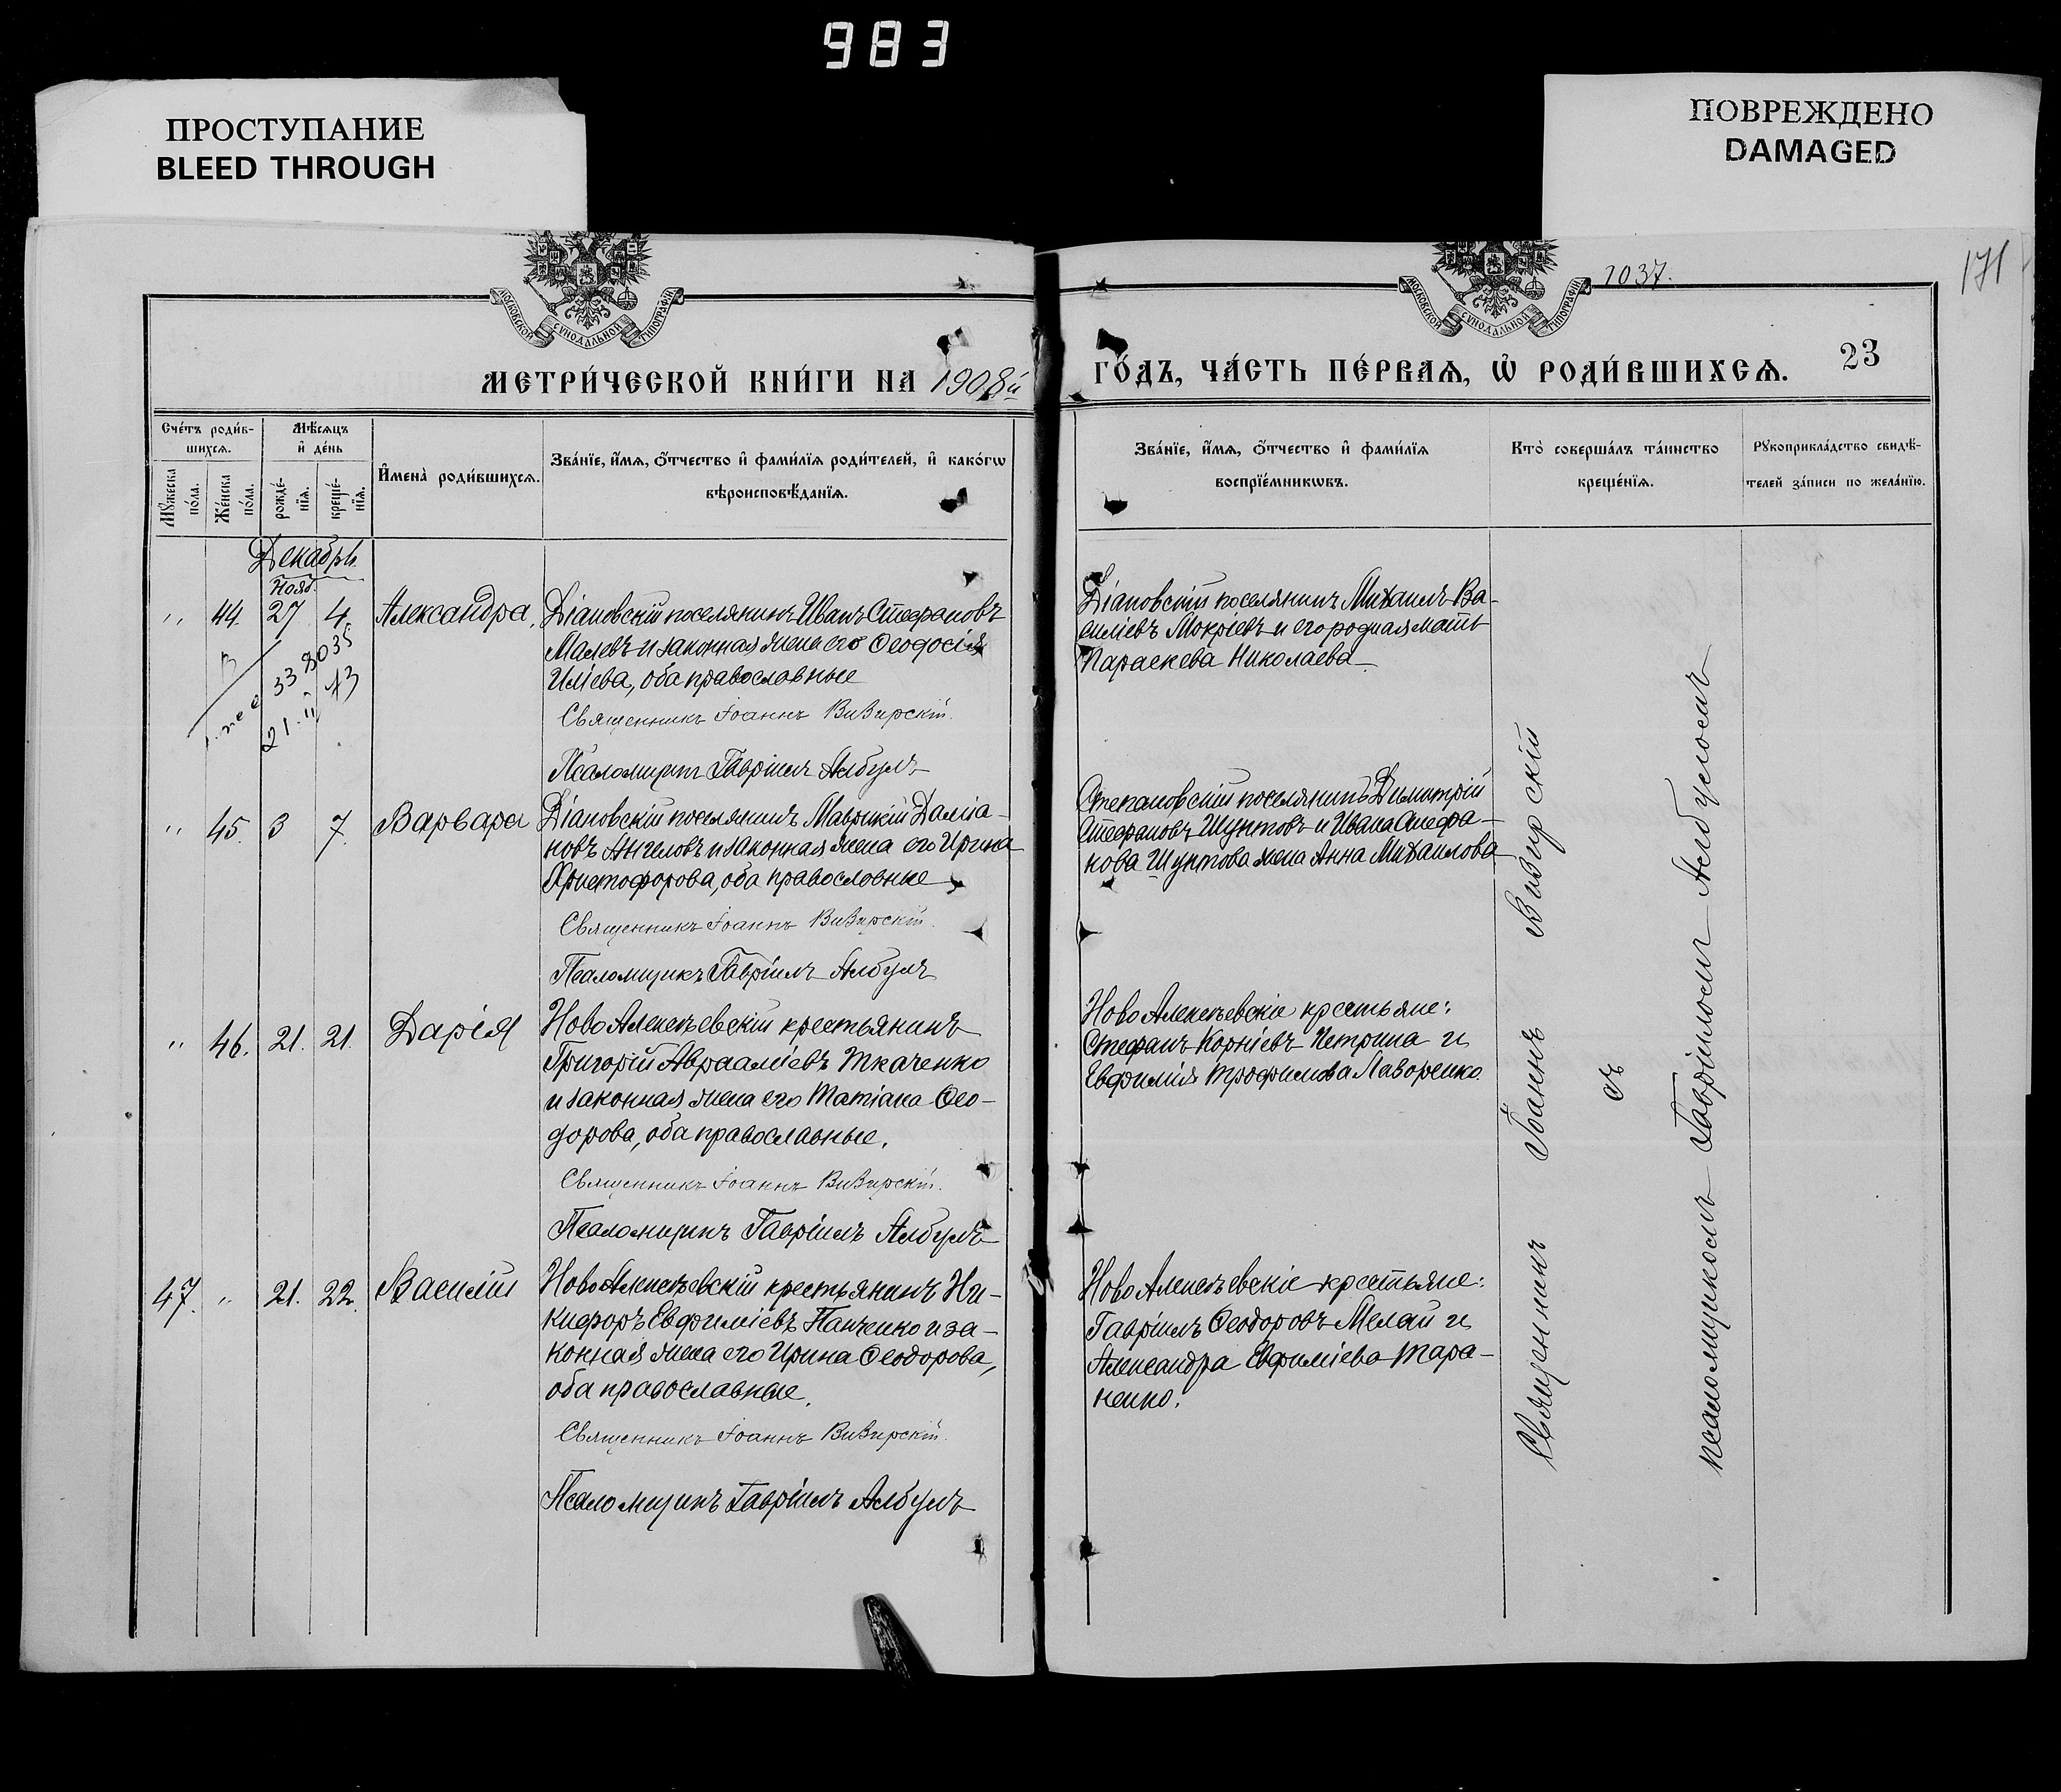 983
ПРОСТУПАНИЕ
BLEED THROUGH
ПОВРЕЖДЕНО
DAMAGED
МОСКОВСКОЙ СѴНОДАЛЬНОЙ ТИПОГРАФІИ
МОСКОВСКОЙ СѴНОДАЛЬНОЙ ТИПОГРАФІИ
1037.
171
МЕТРИ́ЧЕСКОЙ КНИ́ГИ НА 1908й ГО́ДЪ, ЧА́СТЬ ПЕ́РВАѦ, Ѡ҆ РОДИ́ВШИХСѦ. 23
Сче́тъ роди́в-
шихсѧ.
Мꙋ́жеска
по́ла.
Же́нска
по́ла.
Мѣ́сѧцъ
и҆ де́нь
рожде́-
нїѧ.
креще́-
нїѧ.
И҆мена̀ роди́вшихсѧ.
Зва́нїе, и҆́мѧ, ѻ҆́тчество и҆ фами́лїѧ роди́телей, и҆ како́гѡ
вѣроисповѣ́данїѧ.
Зва́нїе, и҆́мѧ, ѻ҆́тчество и҆ фами́лїѧ
воспрїе́мникѡвъ.
Кто̀ соверша́лъ та́инство
креще́нїѧ.
Рꙋкоприкла́дство свидѣ́-
телей за́писи по жела́нїю.
Декабрь
Нояб.
" 44. 27 4. Александра,
Діановскій поселянинъ Иванъ Стефановъ
Малевъ и законная жена его Ѳеодосія
Иліева, оба православные
Священникъ Іоаннъ Визирскій.
Псаломщикъ Гавріилъ Албулъ
338035
21. II 73
Діановскій поселянинъ Михаилъ Ва-
силіевъ Мокріевъ и его родная мать
Параскева Николаева
" 45. 3 7. Варвара
Діановскій поселянинъ Маврикій Даміа-
новъ Ангеловъ и законная жена его Ирина
Христофорова, оба православные
Священникъ Іоаннъ Визирскій.
Псаломщикъ Гавріилъ Албулъ
Степановскій поселянинъ Димитрій
Стефановъ Шунтовъ и Ивана Стефа-
нова Шунтова жена Анна Михаилова
" 46. 21. 21. Дарія
Ново Алексѣевскій крестьянинъ
Григорій Авраамiевъ Ткаченко
и законная жена его Татіана Ѳео-
дорова, оба православные.
Священникъ Іоаннъ Визирскій.
Псаломщикъ Гавріилъ Албулъ
Ново Алексѣевскіе крестьяне:
Стефанъ Корніевъ Петрина и
Евфимія Трофимова Лаворенко.
47. " 21. 22. Василій
Ново Алексѣевскій крестьянинъ Ни-
кифоръ Евфиміевъ Панченко и за-
конная жена его Ирина Ѳеодорова,
оба православные.
Священникъ Іоаннъ Визирскій.
Псаломщикъ Гавріилъ Албулъ
Ново Алексѣевскіе крестьяне:
Гавріилъ Ѳеодоровъ Мелай и
Александра Евфиміева Тара-
ненко.
Священникъ Іоаннъ Визирскій
съ
псаломщикомъ Гавріиломъ Албуломъ